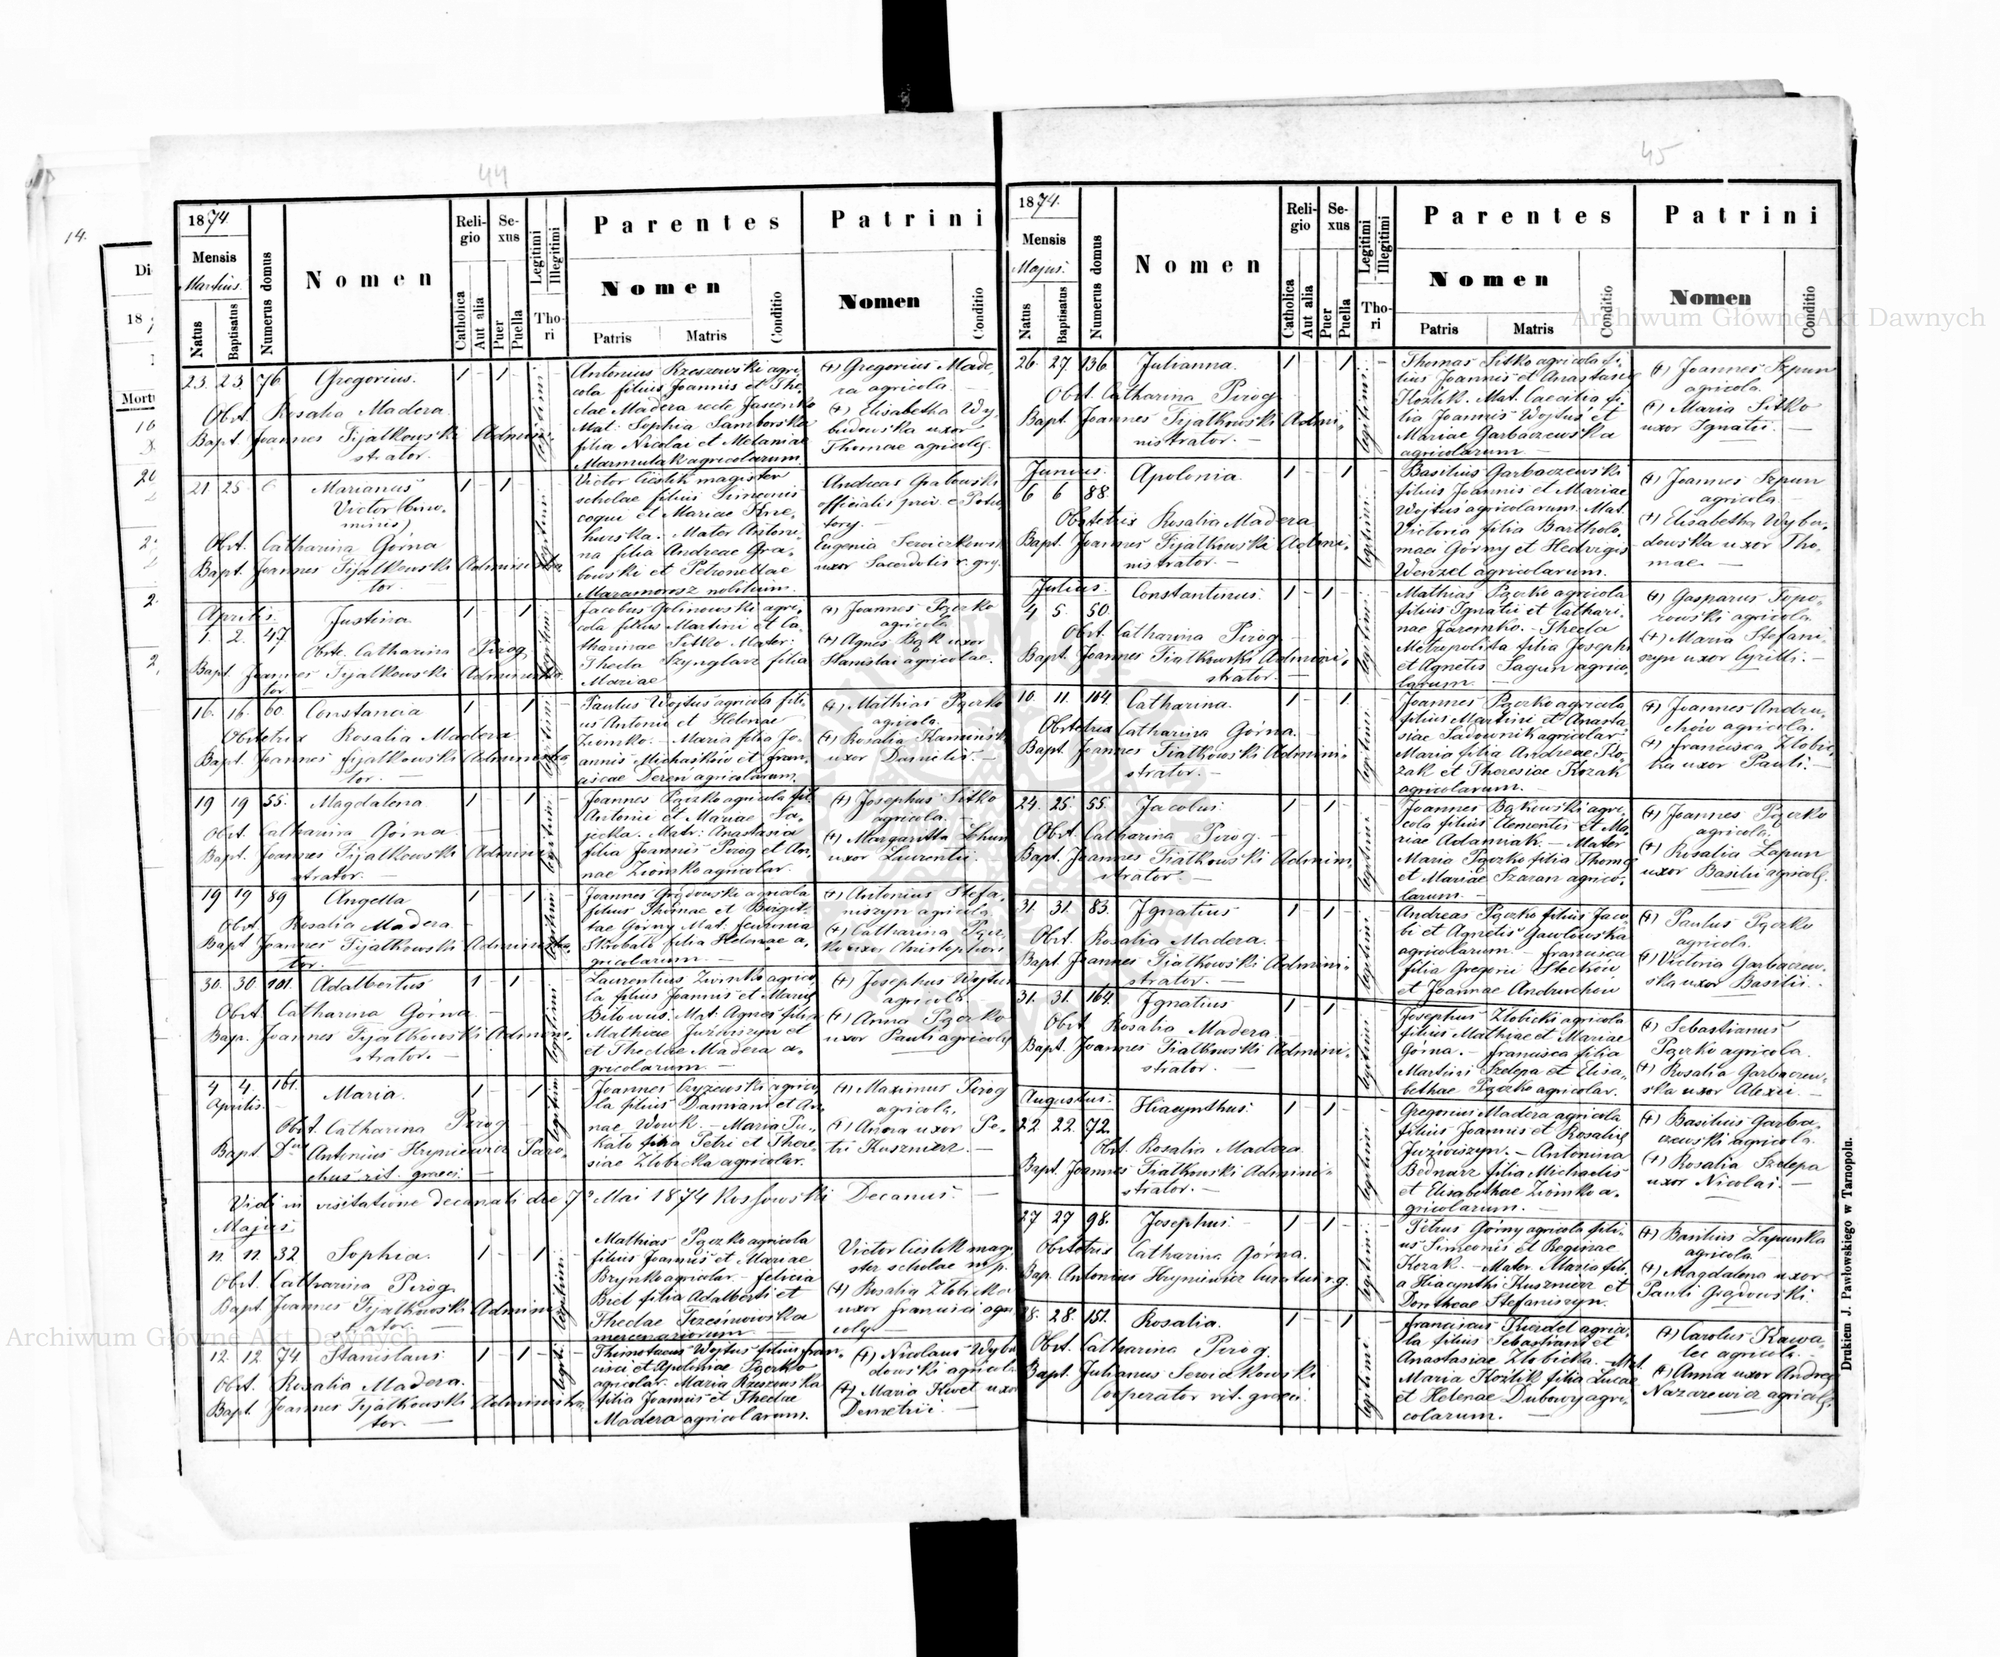 44
1874.
Mensis
Martius.
Natus
Baptisatus
Numerus domus
Nomen
Religio
Catholica
Aut alia
Sexus
Puer
Puella
Legitimi
Illegitimi
Thori
Parentes
Nomen
Patris
Matris
Conditio
Patrini
Nomen
Conditio
23. 23. 76 Gregorius. 1 - 1 -
Obst. Rosalia Madera.
Bapt. Joannes Fijałkowski Admini-
strator.
legitimi
Antonius Rzeszewski agri-
cola filius Joannis et The-
clae Madera recte Jasienko
Mat. Sophia Samborska
filia Nicolai et Melaniae
Marmulak agricolarum.
(+) Gregorius Made-
ra agricola
(+) Elisabetha Wy-
budowska uxor
Thomae agricolae.
21 25 Marianus 1 - 1 -
Victor (bino-
minis)
Obst. Catharina Górna
Bapt. Joannes Fijałkowski Administra-
tor.
legitimi
Victor Cieślik magister
scholae filius Simeonis
coqui et Mariae
Mater Antoni-
na filia Andreae Gra-
bowski et Petronellae
Maramorosz nobilium.
Andreas Grabowski
officialis priv. e Potu-
tory.
Eugenia
uxor Sacerdotis r. gr.
Aprilis.
1. 2. 47 Justina 1 - - 1
Obste. Catharina Pirog
Bapt. Joannes Fijałkowski Administra-
tor
legitimi
Jacobus Golinowski agri-
cola filius Martini et Ca-
tharinae Sitko. Mater:
Thecla Szynglarz filia
Mariae
(+) Joannes Pączko
agricola
(+) Agnes Bąk uxor
Stanislai agricolae.
16. 16. 60. Constancia 1 - - 1
Obstetrix Rosalia Madera
Bapt. Joannes Fijałkowski Administra-
tor.
legitimi
Paulus Wojtuś agricola fili-
us Antonii et Helenae
Ziomko. - Maria filia Jo-
annis Michałków et Fran-
ciscae Dereń agricolarum.
(+) Mathias Pączko
agricola.
(+) Rosalia Kamińsk
uxor Danielis.
19 19 55. Magdalena 1 - - 1
Obst. Catharina Górna.
Bapt. Joannes Fijałkowski Admini-
strator.
legitimi
Joannes Pączko agricola fil.
Antonii et Mariae
Matr: Anastasia
filia Joannis Pirog et An-
nae Ziomko agricolar.
(+) Josephus Sitko
agricola.
(+) Margaretta
uxor Laurentii.
19 19 89 Angella 1 - - 1
Obst. Rosalia Madera.
Bapt. Joannes Fijałkowski Administra-
tor.
legitimi
Joannes Grądowski agricola
filius Thomae et Birgit-
tae Górny Mat:
Skobało filia Helenae a-
gricolarum.
(+) Antonius Stefa-
niszyn agricola
(+) Catharina Pącz-
ko uxor Christophori
30. 30. 101. Adalbertus 1 - 1 -
Obst. Catharina Górna.
Bap. Joannes Fijałkowski Admini-
strator.
legitimi
Laurentius Ziomko agrico-
la filius Joannis et Mariae
Mat: Agnes filia
Mathiae Juzwiszyn et
et Theclae Madera a-
gricolarum.
(+) Josephus Wojtuś
agricola.
(+) Anna Pączko
uxor Pauli agricolae
4 4. 161. Maria. 1 - - 1
Aprilis
Obst. Catharina Pirog
Bapt Dnus Antonius Hryniewicz Paro-
chus rit. graeci.
legitimi
Joannes Czyżewski agrico-
la filius Damiani et An-
nae Wowk. - Maria Ju-
kało filia Petri et There-
siae Złobicka agricolar.
(+) Maximus Pirog
agricola.
(+) Anna uxor Pe-
tri Kuszmierz.
Vidi in visitatione decanali die 7 Mai 1874 Kossowski Decanus.
Majus.
11. 11. 32. Sophia. 1 - - 1
Obst. Catharina Pirog
Bapt. Joannes Fijałkowski Admini-
strator.
legitimi
Mathias Pączko agricola
filius Joannis et Mariae
Brynko agricolar. - Felicia
Biel filia Adalberti et
Theclae Trześniowska
mercenariorum
Victor Cieślik magi-
ster scholae mp.
(+) Rosalia Złobicka
uxor Francisci agri-
colae
12. 12 74 Stanislaus 1 - 1 -
Obst. Rosalia Madera.
Bapt. Joannes Fijałkowski Administra-
tor.
legiti.
Thimotaeus Wojtuś filius Fran-
cisci et Apoloniae Pączko
agricolar. Maria Rzeszewska
filia Joannis et Theclae
Madera agricolarum.
(+) Nicolaus Wybu
dowski agricola
(+) Maria Kwet uxor
Demetrii.
45
1874.
Mensis
Majus.
Natus
Baptisatus
Numerus domus
Nomen
Religio
Catholica
Aut alia
Sexus
Puer
Puella
Legitimi
Illegitimi
Thori
Parentes
Nomen
Patris
Matris
Conditio
Patrini
Nomen
Conditio
26. 27. 136. Julianna. 1 - - 1
Obst. Catharina Pirog
Bapt. Joannes Fijałkowski Admi-
nistrator.
legitimi
Thomas Sitko agricola fi-
lius Joannis et Anastasiae
Kozlik. Mat. Caecilia fi-
lia Joannis Wojtuś et
Mariae Garbaczewska
agricolarum
(+) Joannes Szpun
agricola.
(+) Maria Sitko
uxor Ignatii.
Junius.
6 6 88. Apolonia. 1 - - 1
Obstetrix Rosalia Madera
Bapt. Joannes Fijałkowski Admi-
nistrator.
legitimi
Basilius Garbaczewski
filius Joannis et Mariae
Wojtuś agricolarum. Mat.
Victoria filia Bartholo-
maei Górny et Hedvigis
Wenzel agricolarum.
(+) Joannes Szpun
agricola
(+) Elisabetha Wybu-
dowska uxor Tho-
mae.
Julius.
4 5 50. Constantinus. 1 - 1 -
Obst. Catharina Pirog
Bapt. Joannes Fiałkowski Admini-
strator.
legitimi
Mathias Pączko agricola
filius Ignatii et Cathari-
nae Jaremko. - Thecla
Metropolita filia Josephi
et Agnetis Sagun agrico-
larum.
(+) Gasparus Topo-
rowski agricola.
(+) Maria Stefani-
szyn uxor Cyrilli.
10. 11. 104. Catharina. 1 - - 1
Obstetrix Catharina Górna.
Bapt. Joannes Fiałkowski Admini-
strator.
legitimi
Joannes Pączko agricola
filius Martini et Anasta-
siae Sadownik agricolar.
Maria filia Andreae
et Theresiae Kozak
agricolarum.
(+) Joannes Andru-
chów agricola.
(+) Francisca Złobic-
ka uxor Pauli.
24. 25. 55. Jacobus. 1 - 1 -
Obst. Catharina Pirog.
Bapt. Joannes Fiałkowski Admini-
strator
legitimi
Joannes Bąkowski agri-
cola filius Clementis et Ma-
riae Adamiak. - Mater
Maria Pączko filia Thomae
et Mariae Szaran agrico-
larum
(+) Joannes Pączko
agricola.
(+) Rosalia Łapun
uxor Basilii agricolae.
31. 31. 83. Ignatius 1 - 1 -
Obst. Rosalia Madera.
Bapt. Joannes Fiałkowski Admini-
strator.
legitimi
Andreas Pączko filius Jaco-
bi et Agnetis Gawłowska
agricolarum. - Francisca
filia Gregorii Stecków
et Joannae Andruchów
(+) Paulus Pączko
agricola.
(+) Victoria Garbaczew-
ska uxor Basilii.
31. 31. 164. Ignatius 1 - 1 -
Obst. Rosalia Madera.
Bapt. Joannes Fiałkowski Admini-
strator.
legitimi
Josephus Złobicki agricola
filius Mathiae et Mariae
Górna. - Francisca filia
Martini Szelepa et Elisa-
bethae Pączko agricolar.
(+) Sebastianus
Pączko agricola.
(+) Rosalia Garbaczew-
ska uxor Alexii.
Augustus.
22. 22. 72. Hiacynthus. 1 - 1 -
Obst. Rosalia Madera
Bapt. Joannes Fiałkowski Admini-
strator.
legitimi
Gregorius Madera agricola
filius Joannis et Rosaliae
Juzwiszyn. - Antonina
Bodnarz filia Michaelis
et Elisabethae Ziomko a-
gricolarum.
(+) Basilius Garba-
czewski agricola.
(+) Rosalia Szelepa
uxor Nicolai.
27 27 98. Josephus. 1 - 1 -
Obstetrix Catharina Górna.
Bap. Antonius Hryniewicz Curatus r. g.
legitimi
Petrus Górny agricola fili-
us Simeonis et Reginae
Kozak. - Mater Maria fili-
a Hiacynthi Kuszmierz et
Dorotheae Stefaniszyn.
(+) Basilius Łapunka
agricola
(+) Magdalena uxor
Pauli Grądowski.
28. 28. 151. Rosalia. 1 - - 1
Obst. Catharina Pirog.
Bapt. Julianus
Cooperator rit. graeci.
legitimi
Franciscus agrico-
la filius Sebastiani et
Anastasiae Złobicka. - Mat.
Maria Kozlik filia Lucae
et Helenae Dubowy agri-
colarum.
(+) Carolus Kawa-
lec agricola
(+) Anna uxor Andreae
Nazarewicz agricolae.
Drukiem J. Pawłowskiego w Tarnopolu.
14.
Archiwum Główne Akt Dawnych
Archiwum Główne Akt Dawnych